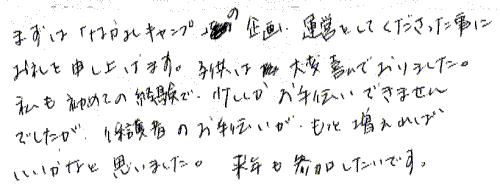 まずは「なかよしキャンプ」の企画、運営をしてくださった事に
お礼を申し上げます。子供は大変喜んでおりました。
私も初めての経験で、少ししかお手伝いできません
でしたが、保護者のお手伝いが、もっと増えれば
いいかなと思いました。来年も参加したいです。